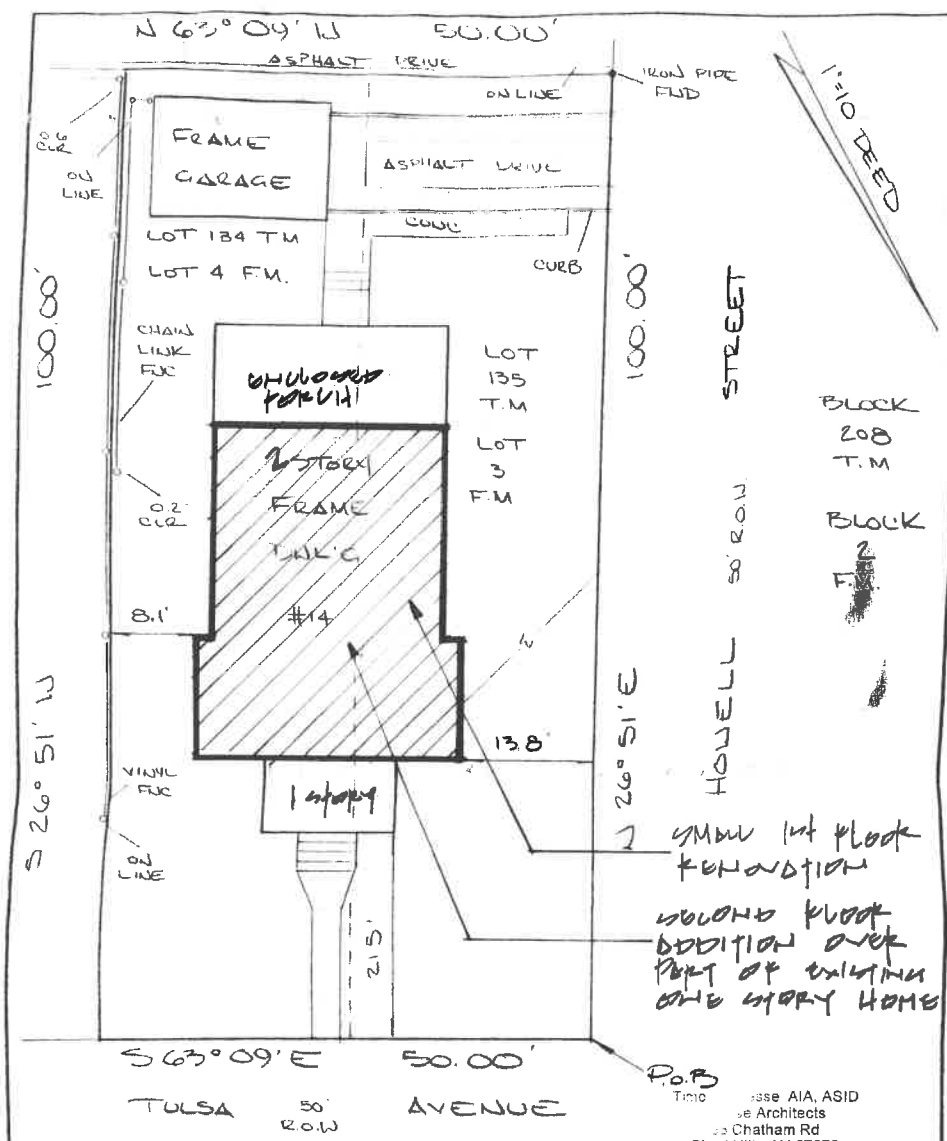 N 63° 09' W 50.00'
ASPHALT DRIVE
ON LINE
IRON PIPE
FND
1"=10 DEED
0.6
CLR
ON
LINE
FRAME
GARAGE
ASPHALT DRIVE
CONC
CURB
LOT 134 TM
LOT 4 F.M.
100.00'
CHAIN
LINK
FNC
ENCLOSED
PORCH
LOT
135
T.M
LOT
3
F.M
100.00'
STREET
BLOCK
208
T.M
BLOCK
2
0.2
CLR
2 STORY
FRAME
DWL'G
#14
50' R.O.W
8.1'
13.8'
S 26° 51' W
26° 51' E
HOWELL
VINYL
FNC
ON
LINE
1 STORY
21.5'
SMALL 1ST FLOOR
RENOVATION
SECOND FLOOR
ADDITION OVER
PART OF EXISTING
ONE STORY HOME
S 63° 09' E 50.00'
P.O.B
TULSA 50' AVENUE
R.O.W
AIA, ASID
Architects
Chatham Rd